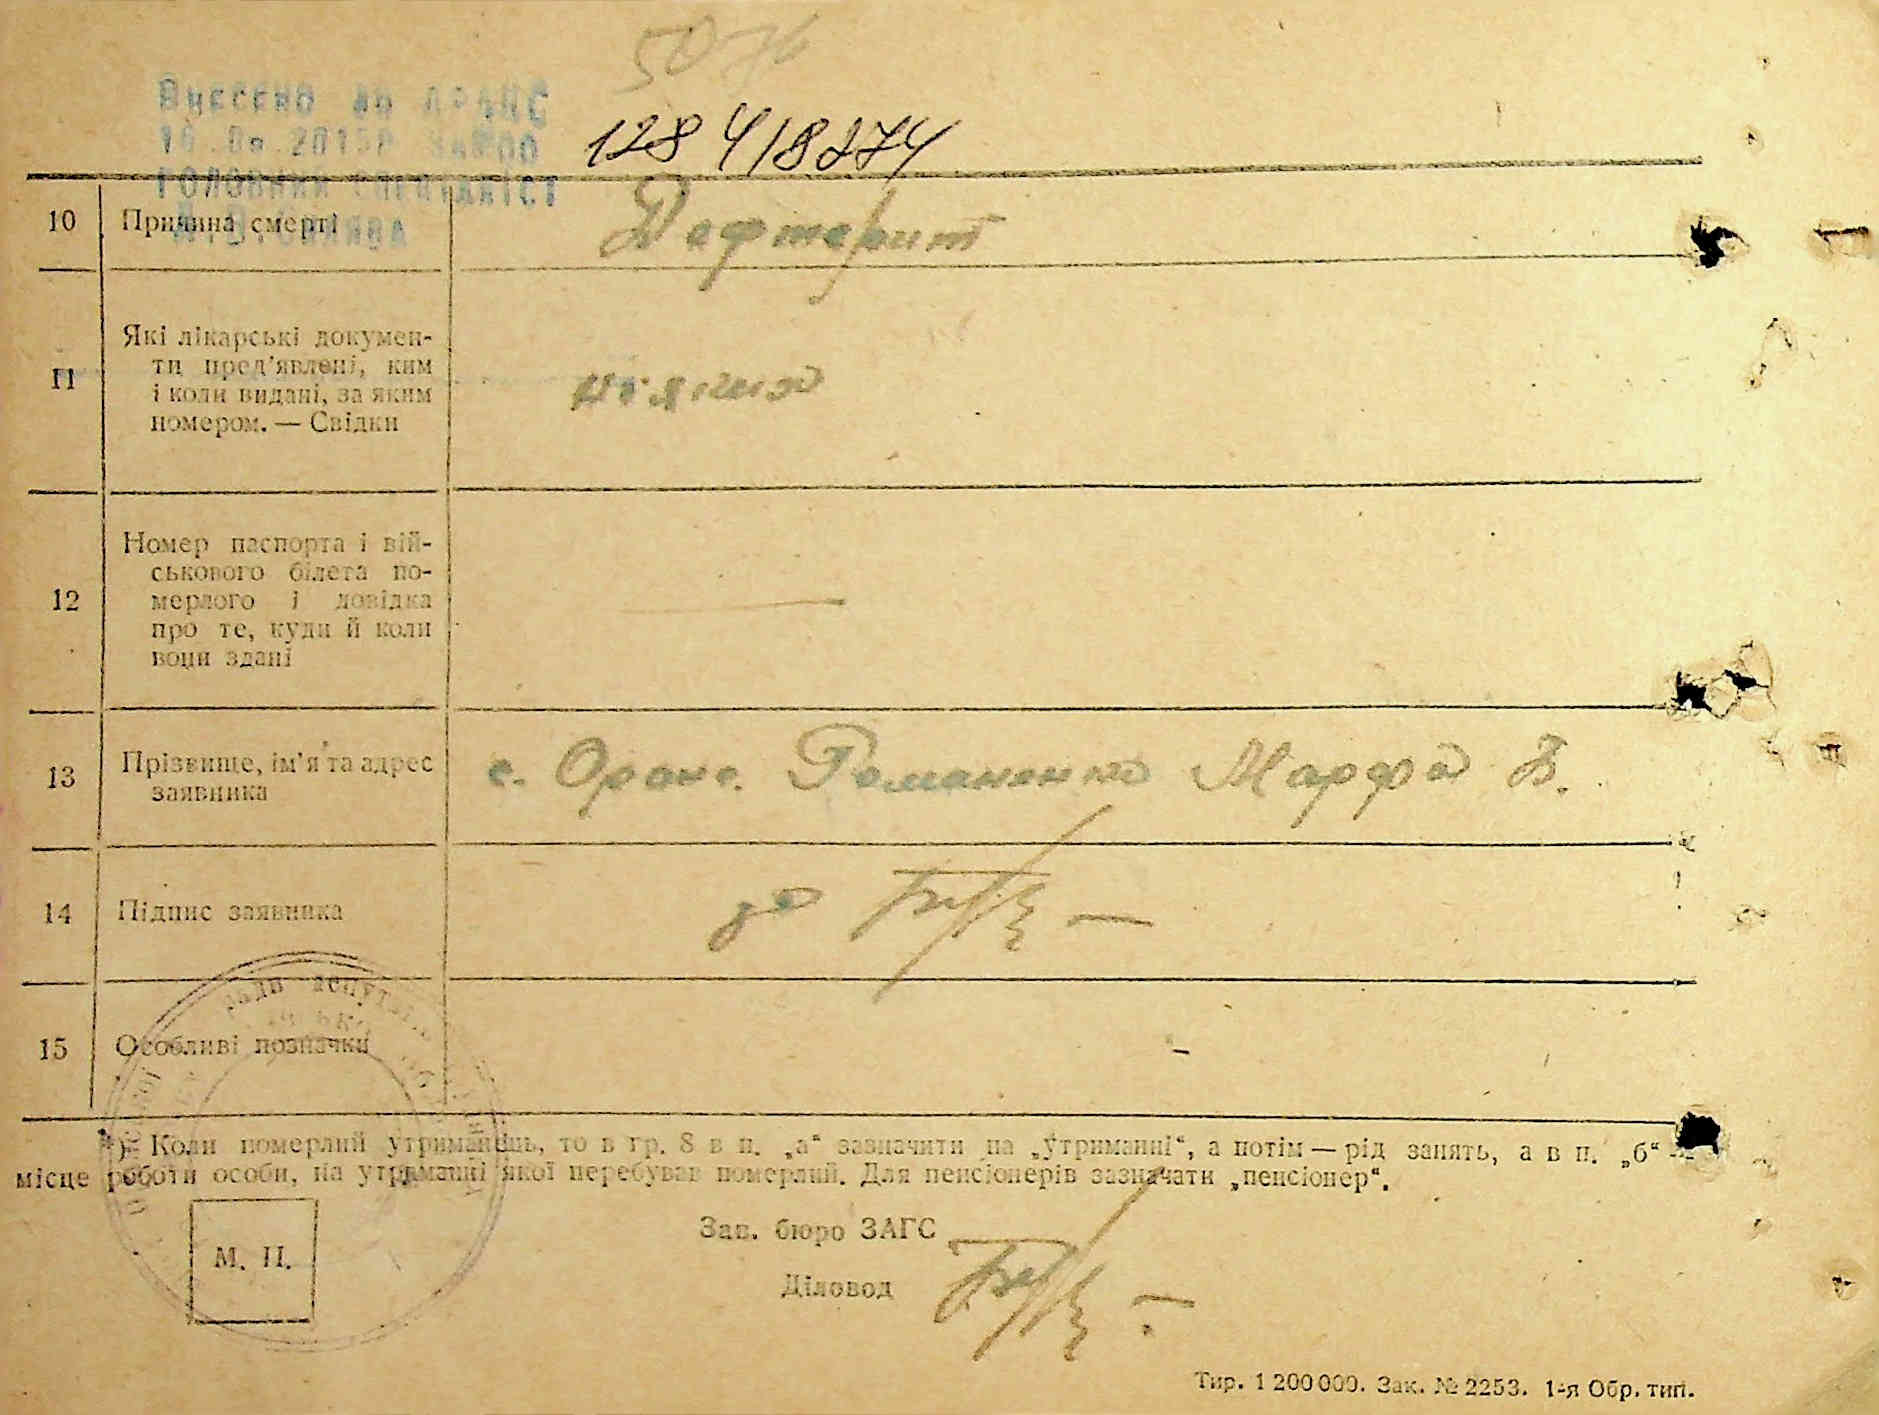 5076
Внесено до ДРАЦС
128 418274
головний спеціаліст
10 Причина смерті Дефтерит
11 Які лікарські докумен-
ти пред'явлені, ким
і коли видані, за яким
номером. — Свідки
12 Номер паспорта і вій-
ськового білета по-
мерлого і довідка
про те, куди й коли
вони здані —
13 Прізвище, ім'я та адрес
заявника
с. Оране. Романенко Марфа В.
14 Підпис заявника за
15 Особливі позначки
*) Коли померлий утриманець, то в гр. 8 в п. „а“ зазначити на „утриманні“, а потім — рід занять, а в п. „б“ —
місце роботи особи, на утриманні якої перебував померлий. Для пенсіонерів зазначати „пенсіонер“.
Зав. бюро ЗАГС
М. П.
Діловод
Тир. 1 200 000. Зак. № 2253. 1-я Обр. тип.